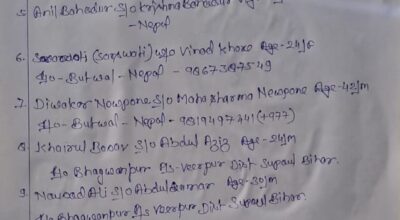 5. Anil Bahadur S/o Krishna Bahadur Age
- Nepal
6. Saraswati (Sarswati) w/o Vinod Khare Age-24/F
H/o - Butwal - Nepal - 9867387549
7. Diwakar Newpane S/o Maha sharma Newpane Age-42/M
H/o - Butwal - Nepal - 9819497741 (+977)
8 Khairul Basar S/o Abdul Aziz Age-24/M
H/o Bhagwanpur Ps-Veerpur Dist Supaul Bihar.
9. Nawsad Ali S/o Abdul Age-30/M
H/o Bhagwanpur Ps Veerpur Dist Supaul Bihar.